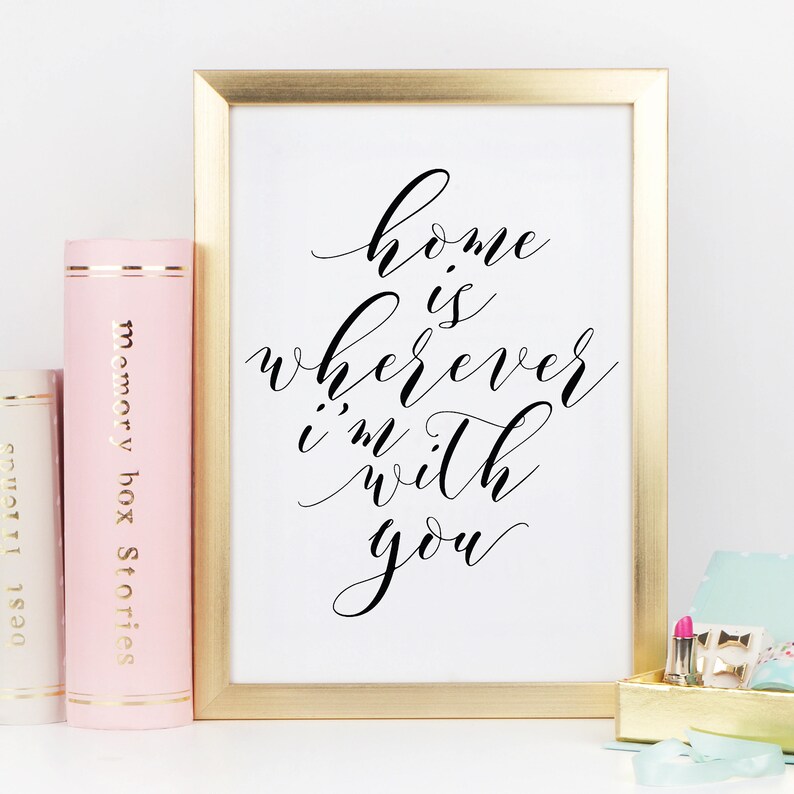 best friends
memory box Stories
home
is
wherever
i'm
with
you